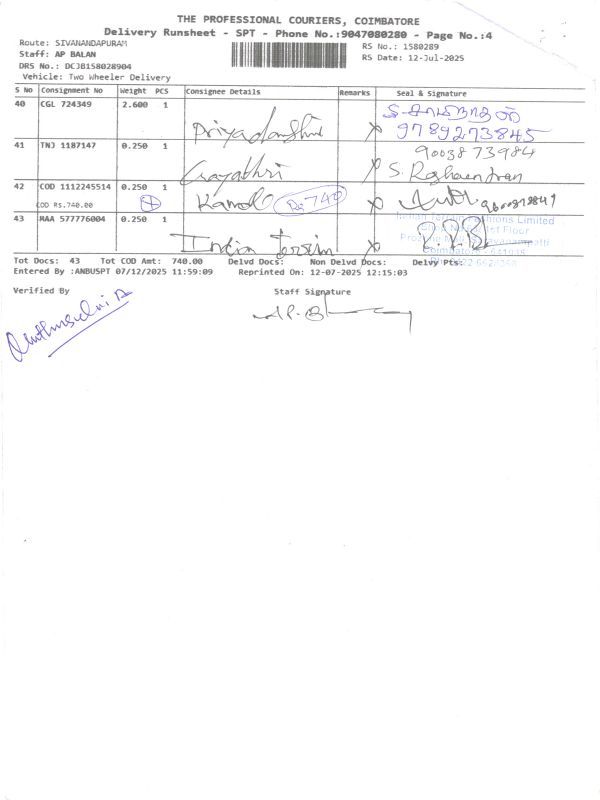 THE PROFESSIONAL COURIERS, COIMBATORE
Delivery Runsheet - SPT - Phone No.:9047080280 - Page No.:4
Route: SIVANANDAPURAM
RS No.: 1580289
Staff: AP BALAN
RS Date: 12-Jul-2025
DRS No.: DCJB158028904
Vehicle: Two Wheeler Delivery
S No Consignment No Weight PCS Consignee Details Remarks Seal & Signature
40 CGL 724349 2.600 1 Priyadarshini
9789273845
41 TNJ 1187147 0.250 1 Gayathri
9003873984
S. Raghavendran
42 COD 1112245514 0.250 1 Kamal Rs 740
COD RS.740.00
43 MAA 577776004 0.250 1 India
Tot Docs: 43 Tot COD Amt: 740.00 Delvd Docs: Non Delvd Docs: Delvy Pts:
Entered By :ANBUSPT 07/12/2025 11:59:09 Reprinted On: 12-07-2025 12:15:03
Verified By Staff Signature